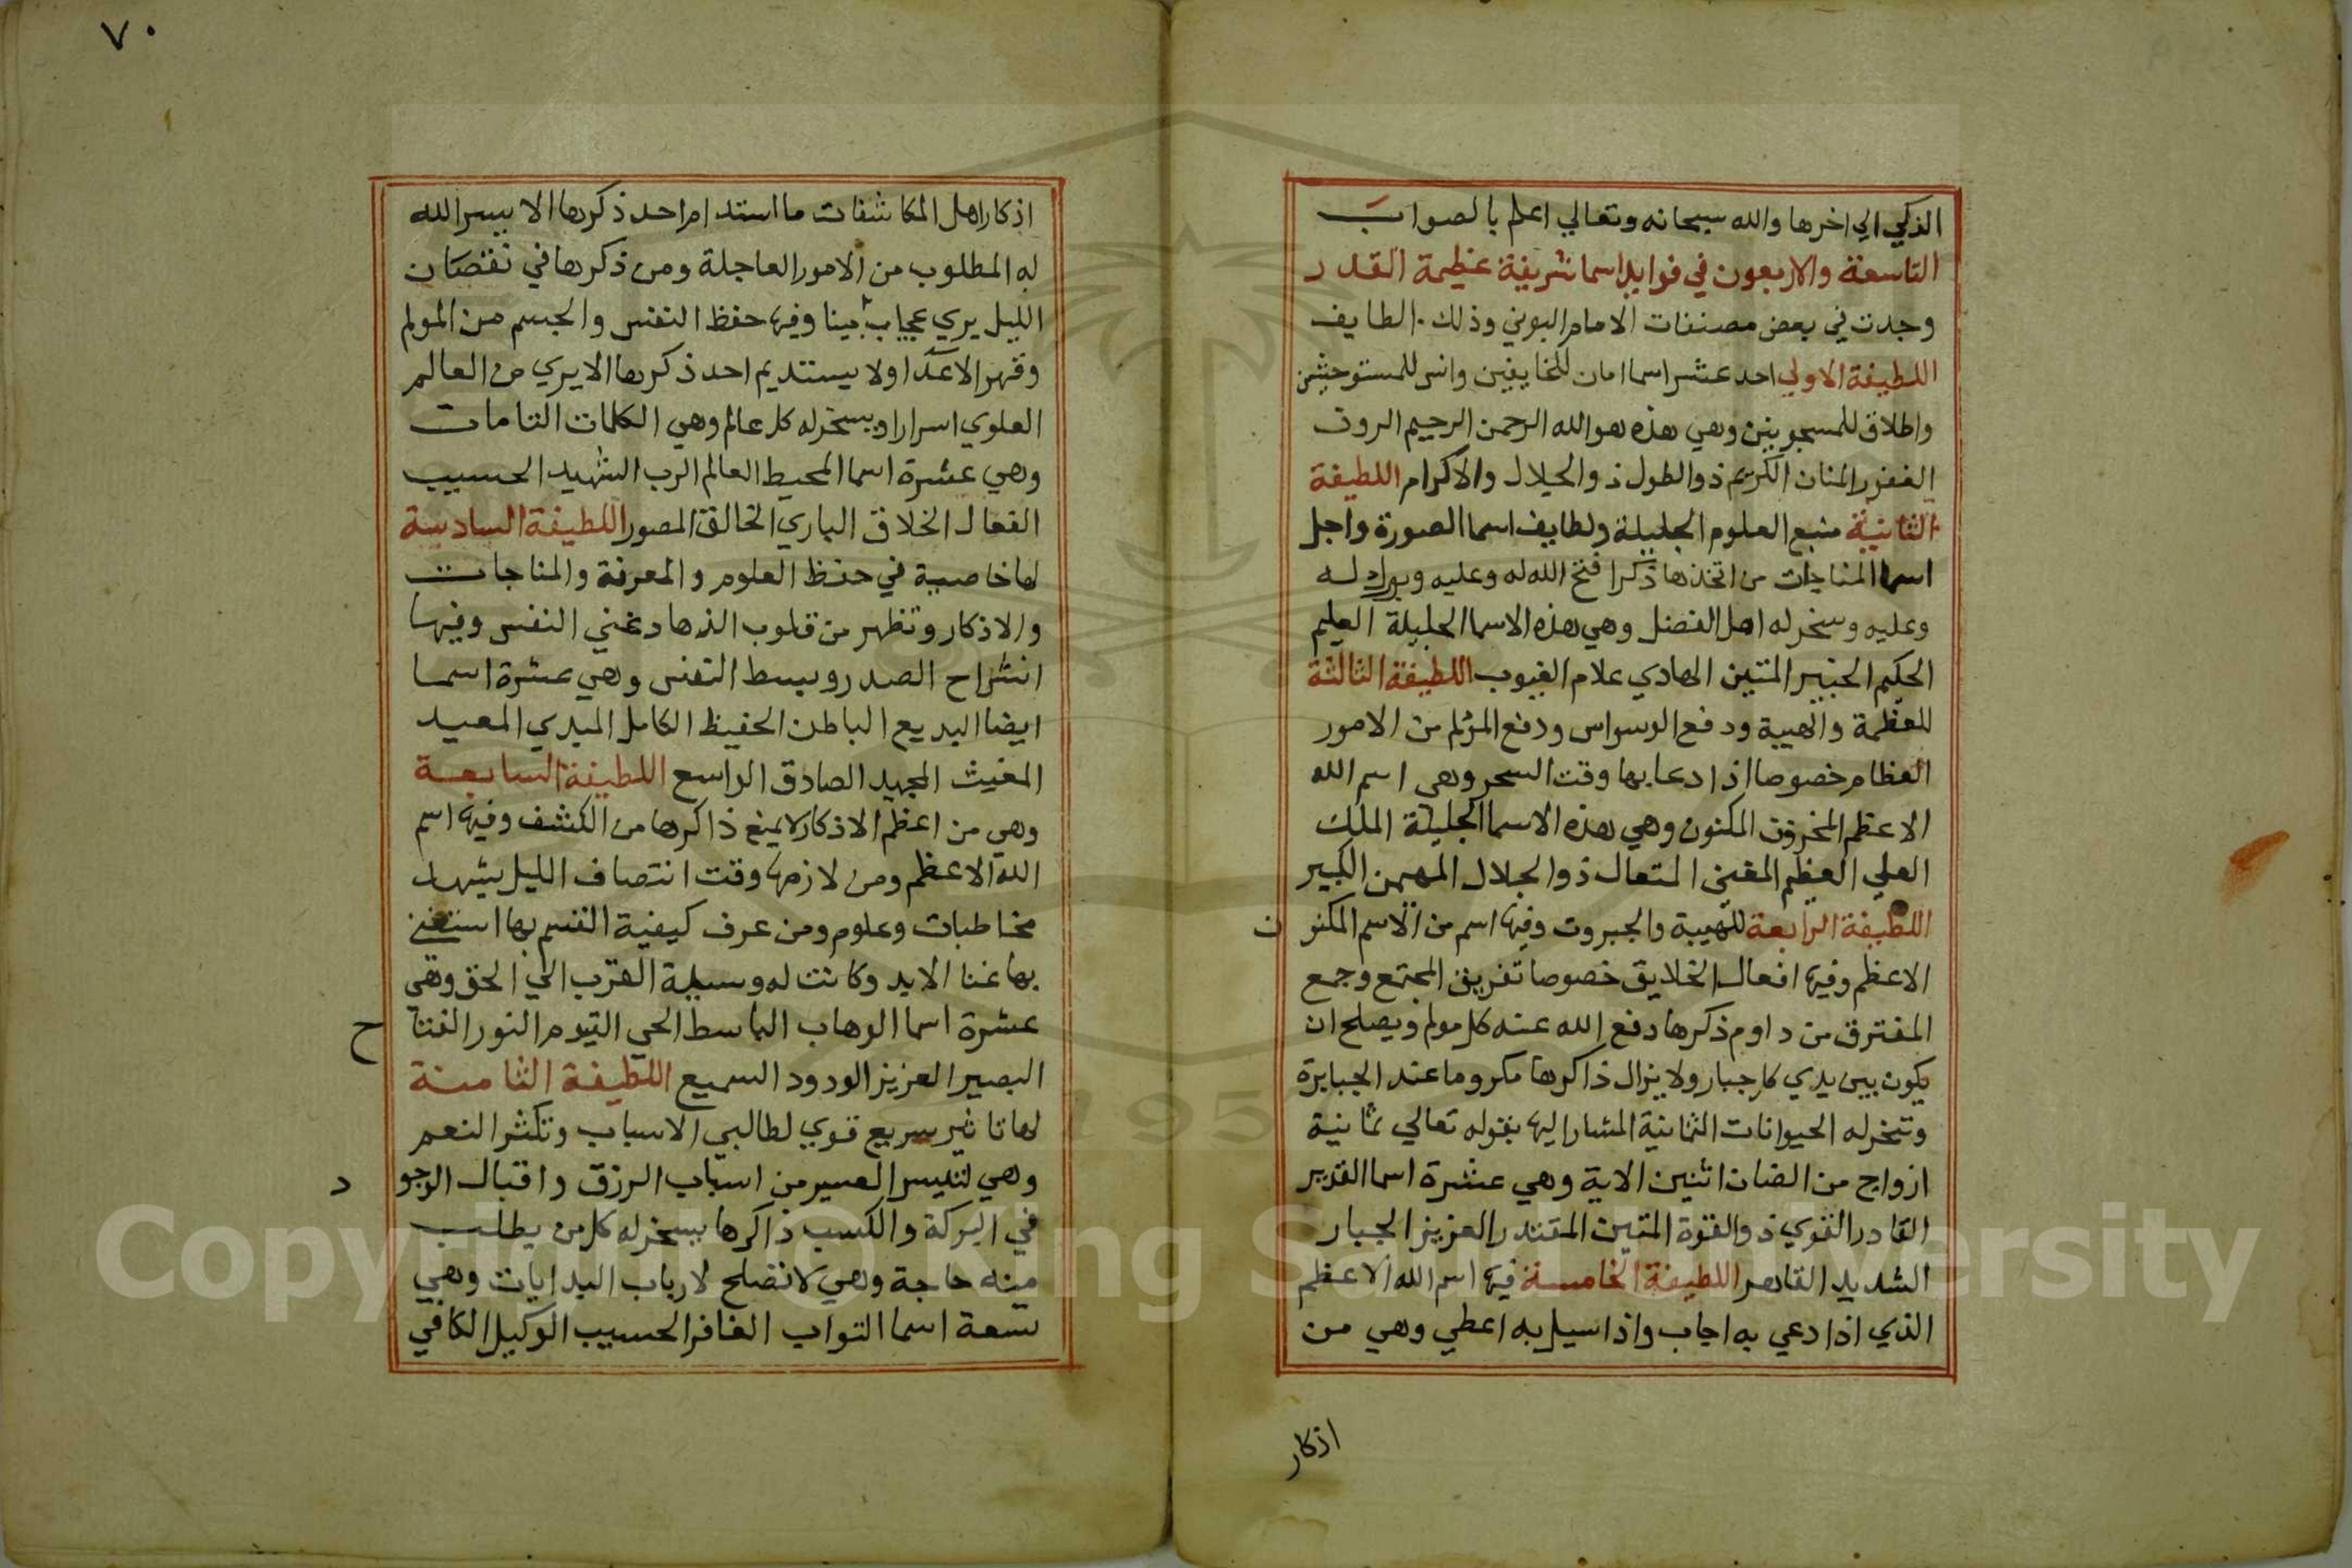 الذكي الي اخرها والله سبحانه وتعالي اعلم بالصواب
التاسعة والاربعون في فوايد اسما شريفة عظيمة القدر
وجدت في بعض مصنفات الامام البوني وذلك الطايف
اللطيفة الاولي احد عشر اسما امان للخايفين وانس للمستوحشين
واطلاق للمسجونين وهي هذه هو الله الرحمن الرحيم الروف
الغفور المنان الكريم ذو الطول ذو الجلال والاكرام اللطيفة
الثانية منبع العلوم الجليلة ولطايف اسما الصورة واجل
اسما المناجات من اتخذها ذكرا فتح الله له وعليه له
وعليه وسخر له اهل الفضل وهي هذه الاسما الجليلة العليم
الحكيم الخبير المتين الهادي علام الغيوب اللطيفة الثالثة
للعظمة والهيبة ودفع الوسواس ودفع المؤلم من الامور
العظام خصوصا اذا دعا بها وقت السحر وهي اسم الله
الاعظم المخزون المكنون وهي هذه الاسما الجليلة الملك
العلي العظيم المغني المتعال ذو الجلال المهيمن الكبير
اللطيفة الرابعة للهيبة والجبروت وفيها اسم من الاسم المكنون
الاعظم وفيها افعال الخلايق خصوصا تفريق المجتمع وجمع
المفترق من داوم ذكرها دفع الله عنه كل مولم ويصلح ان
يكون بين يدي كل جبار ولا يزال ذاكرها مكروما عند الجبابرة
وتسخر له الحيوانات الثمانية المشار اليها بقوله تعالي ثمانية
ازواج من الضان اثنين الاية وهي عشرة اسما القدير
القادر القوي ذو القوة المتين المقتدر العزيز الجبار
الشديد القاهر اللطيفة الخامسة فيها اسم الله الاعظم
الذي اذا دعي به اجاب واذا سيل به اعطي وهي من
اذكار
٧٠
اذكار اهل المكاشفات ما استدام احد ذكرها الا يسر الله
له المطلوب من الامور العاجلة ومن ذكرها في نقصان
الليل يري عجايب بينا وفيها حفظ النفس والجسم من المولم
وقهر الاعدا ولا يستديم احد ذكرها الا يري من العالم
العلوي اسرارا ويسخر له كل عالم وهي الكلمات التامات
وهي عشرة اسما المحيط العالم الرب الشهيد الحسيب
الفعال الخلاق الباري الخالق المصور اللطيفة السادسة
لها خاصية في حفظ العلوم والمعرفة والمناجات
والاذكار وتظهر من قلوب النفس وفيها
انشراح الصدر وبسط النفس وهي عشرة اسما
ايضا البديع الباطن الحفيظ الكامل المبدي المعيد
المغيث المجيد الصادق الواسع اللطيفة السابعة
وهي من اعظم الاذكار لا يمنع ذاكرها من الكشف وفيها اسم
الله الاعظم ومن لازمها وقت انتصاف الليل يشهد
مخاطبات وعلوم ومن عرف كيفية القسم بها استغني
بها غنا الابد وكانت له وسيلة القرب الي الحق وهي
عشرة اسما الوهاب الباسط الحي القيوم النور الفتاح
البصير العزيز الودود السميع اللطيفة الثامنة
لها تاثير سريع قوي لطالبي الاسباب وتكثر النعم
وهي لتيسير العسير من اسباب الرزق واقبال الوجود
في البركة والكسب ذاكرها يسخر له كل من يطلب
منه حاجة وهي لا تصلح لارباب البدايات وهي
تسعة اسما التواب الغافر الحسيب الوكيل الكافي
Copyright © King Saud University